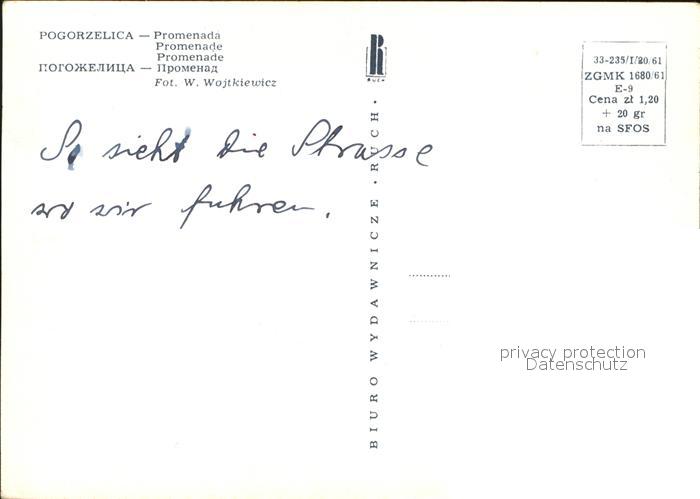 POGORZELICA — Promenada
Promenade
Promenade
ПОГОЖЕЛИЦА — Променад
Fot. W. Wojtkiewicz
R
RUCH
33-235/I/20/61
ZGMK 1680/61
E-9
Cena zł 1,20
+ 20 gr
na SFOS
So sieht die Strasse
wo wir fuhren.
BIURO WYDAWNICZE · RUCH ·
privacy protection
Datenschutz